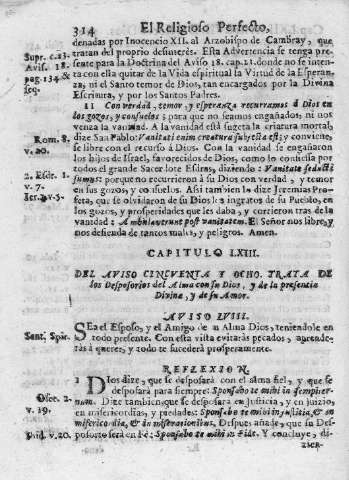 314
El Religioso Perfecto,
denadas por Inocencio XII. al Arzobispo de Cambray, que
tratan del proprio desinterés. Esta Advertencia se tenga pre-
sente para la Doctrina del Aviso 18. cap. 23. donde no se inten-
ta con ella quitar de la Vida espiritual la Virtud de la Esperan-
za, ni el Santo temor de Dios, tan encargados por la Divina
Escritura, y por los Santos Padres.
Supr. c. 23.
Aviso. 18.
pag. 134 &
seq.
11 Con verdad, temor, y esperanza recurramos à Dios en
los gozos, y consuelos; para que no seamos engañados, ni nos
venza la vanidad. A la vanidad està sugeta la criatura mortal,
dize San Pablo: Vanitati enim creatura subjecta est; y conviene,
se libre con el recurso à Dios. Con la vanidad se engañaron
los hijos de Israel, favorecidos de Dios, como lo confiessa por
todos el grande Sacerdote Esdras, diziendo: Vanitate seducti
sumus: porque no recurrieron à su Dios con verdad, y temor
en sus gozos, y consuelos. Assi tambien lo dize Jeremias Pro-
feta, que se olvidaron de su Dios los ingratos de su Pueblo, en
los gozos, y prosperidades que les daba, y corrieron tras de la
vanidad: Ambulaverunt post vanitatem. El Señor nos libre, y
nos defienda de tantos males, y peligros. Amen.
Rom. 8.
v. 20.
2. Esdr. 1.
v. 7.
Jer. 2. v. 5.
CAPITULO LXIII.
DEL AVISO CINCUENTA Y OCHO. TRATA DE
los Desposorios del Alma con su Dios, y de la presencia
Divina, y de su Amor.
AVISO LVIII.
SEa el Esposo, y el Amigo de tu Alma Dios, teniendole en
todo presente. Con esta vista evitarás pecados, aprende-
rás à querer, y todo te sucederá prosperamente.
Sent. Spir.
REFLEXION.
1 DIos dize, que se desposará con el alma fiel, y que se
desposará para siempre: Sponsabo te mihi in sempiter-
num. Dize tambien, que se desposará en Justicia, y en juizio,
en misericordias, y piedades: Sponsabo te mihi in justitia, & in
misericordia, & in miserationibus. Despues añade, que su Des-
posorio será en Fé: Sponsabo te mihi in Fide. Y concluye, di-
Osee. 2.
v. 19.
Ibid. v. 20.